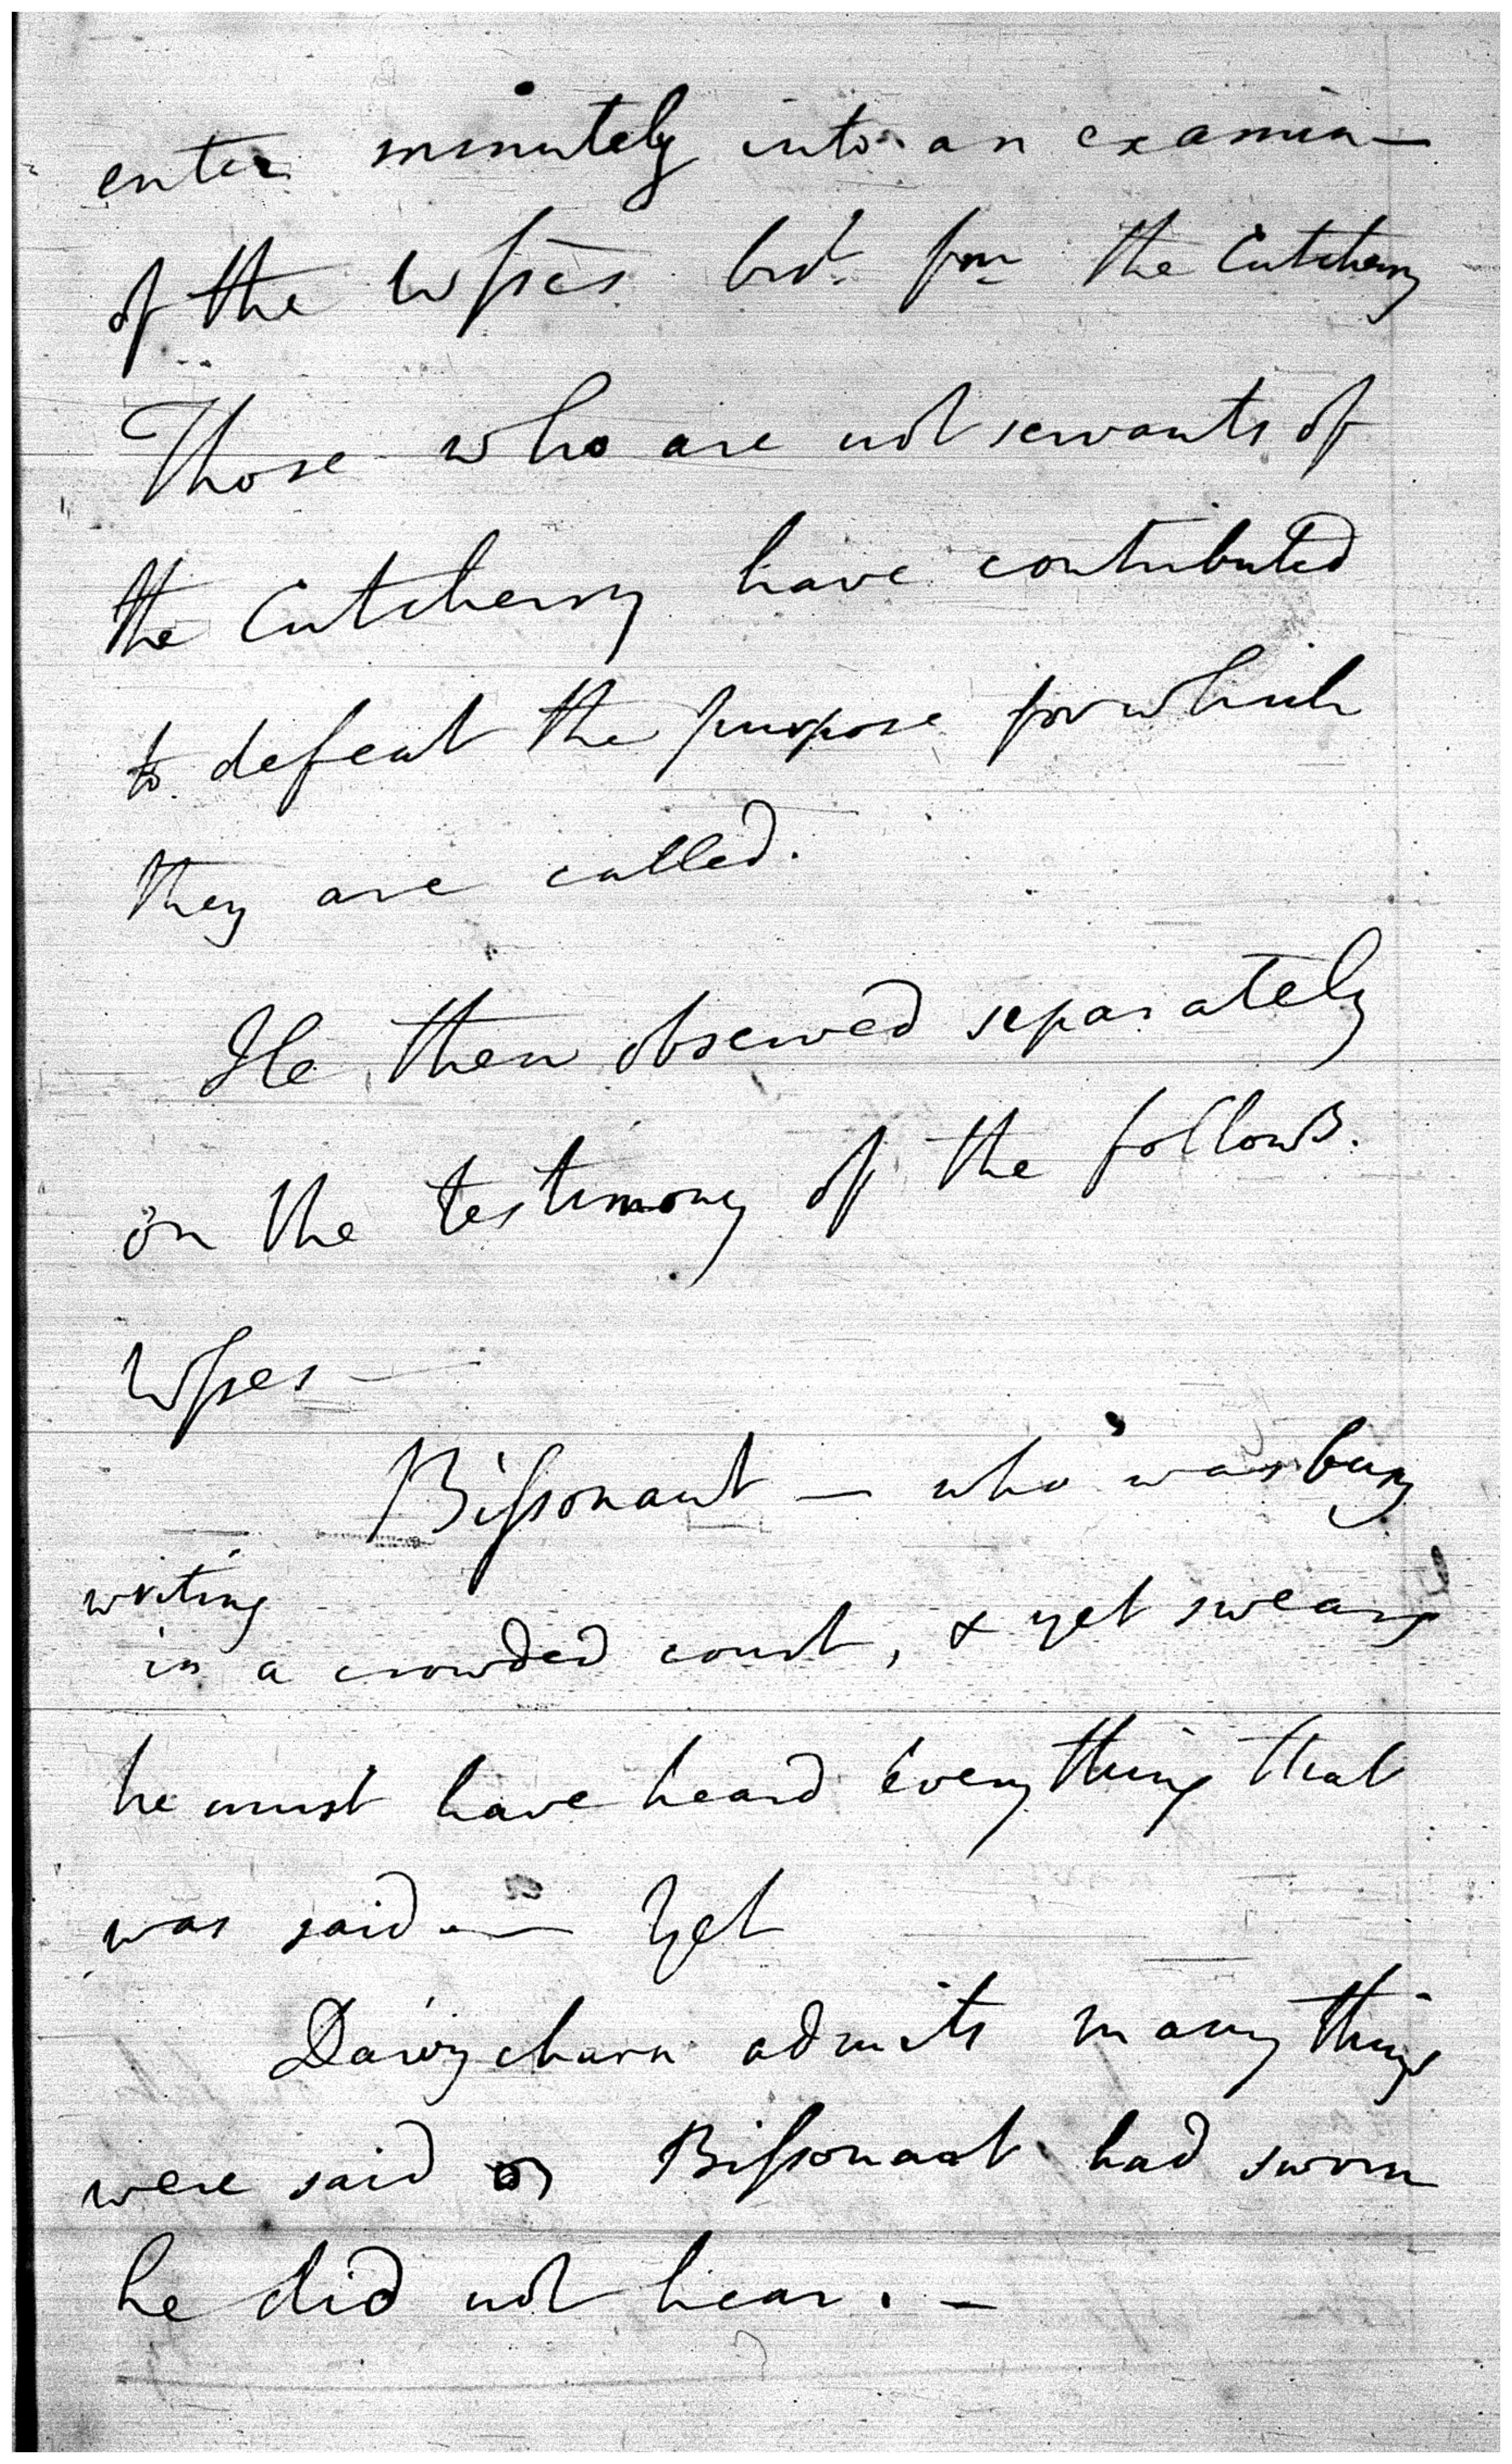 enter minutely into an examin—
of the Wſses brot. from the Cutcherry
Those who are not servants of
the Cutcherry have contributed
to defeat the purpose for which
they are called.
He then observed separately
on the testimony of the follows.
Wſses —
Biſsonaut — who was busy
writing
in a crowded court, & yet swears
he must have heard every thing that
was said — Yet
churn admits many things
were said Biſsonaut had sworn
he did not hear. —